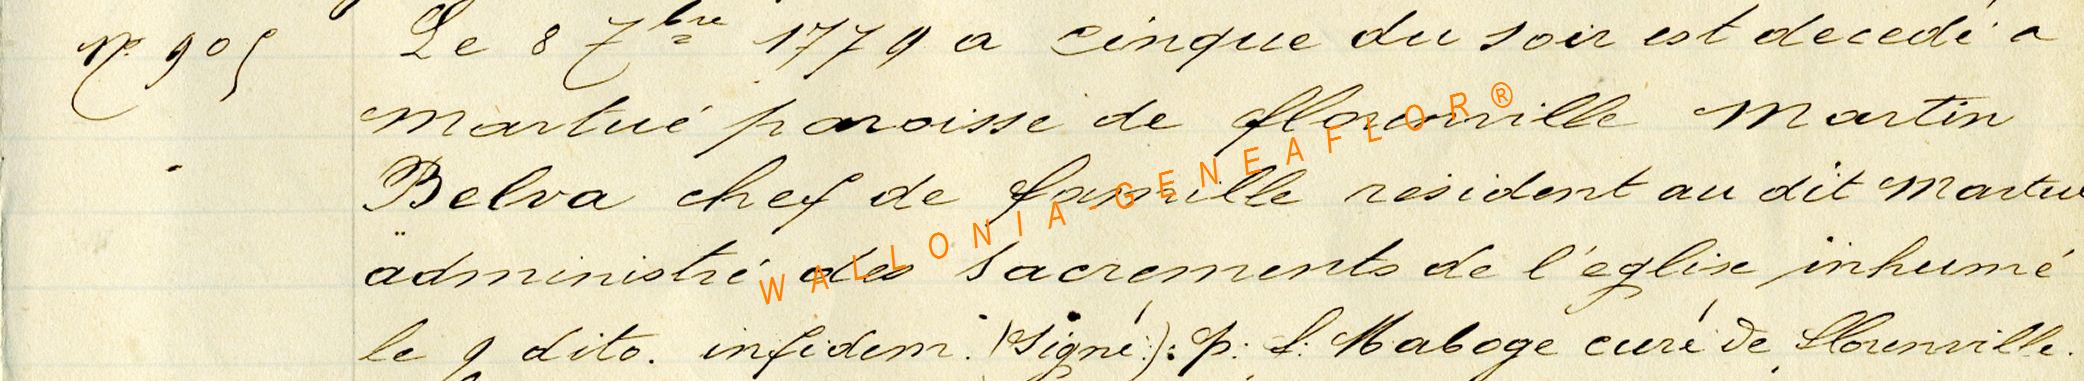 Nº 905 Le 8 7bre 1779 a cinque du soir est decedé a
Martué paroisse de florenville Martin
Belva chef de famille résident au dit Martué
administré des Sacrements de l'eglise inhumé
le 9 dito. infidem. (Signé:). p: f: Maboge curé de florenville.
WALLONIA-GENEAFLOR®